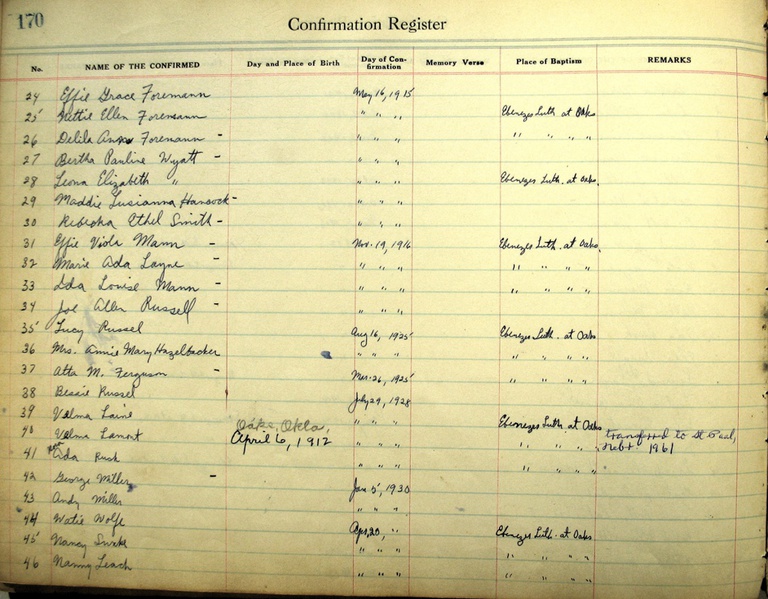 170
Confirmation Register
No. NAME OF THE CONFIRMED Day and Place of Birth Day of Con-firmation Memory Verse Place of Baptism REMARKS
24 Effie Grace Foremann May 16, 1915
25 Nettie Ellen Foremann " " " Ebenezer Luth. at Oaks
26 Delila Ann Foremann - " " " " " " "
27 Bertha Pauline Wyatt - " " "
28 Leona Elizabeth " " " " Ebenezer Luth. at Oaks.
29 Maddie Lusianna Hancock - " " "
30 Rebecka Ethel Smith - " " "
31 Effie Viola Mann - Nov. 19, 1916 Ebenezer Luth. at Oaks.
32 Marie Ada Layne - " " " " " " "
33 Ida Louise Mann - " " " " " " "
34 Joe Allen Russell - " " "
35 Lucy Russel Aug 16, 1925 Ebenezer Luth. at Oaks
36 Mrs. Annie Mary Hazelbacker " " " " " " "
37 Atta M. Ferguson - Mar. 26, 1925 " " " "
38 Bessie Russel July 29, 1928
39 Velma Laine " " " Ebenezer Luth. at Oaks
40 Velma Lamont Oaks, Okla, April 6, 1912 " " " " " " " transfrred to St Paul, Nebr. 1961
41 Ada Ruck " " " " " " "
42 George Miller - Jan 5, 1930
43 Andy Miller " " "
44 Watie Wolfe Apr. 20, " Ebenezer Luth. at Oaks
45 Nancy Swake " " " " " " "
46 Nanny Leach " " " " " " "